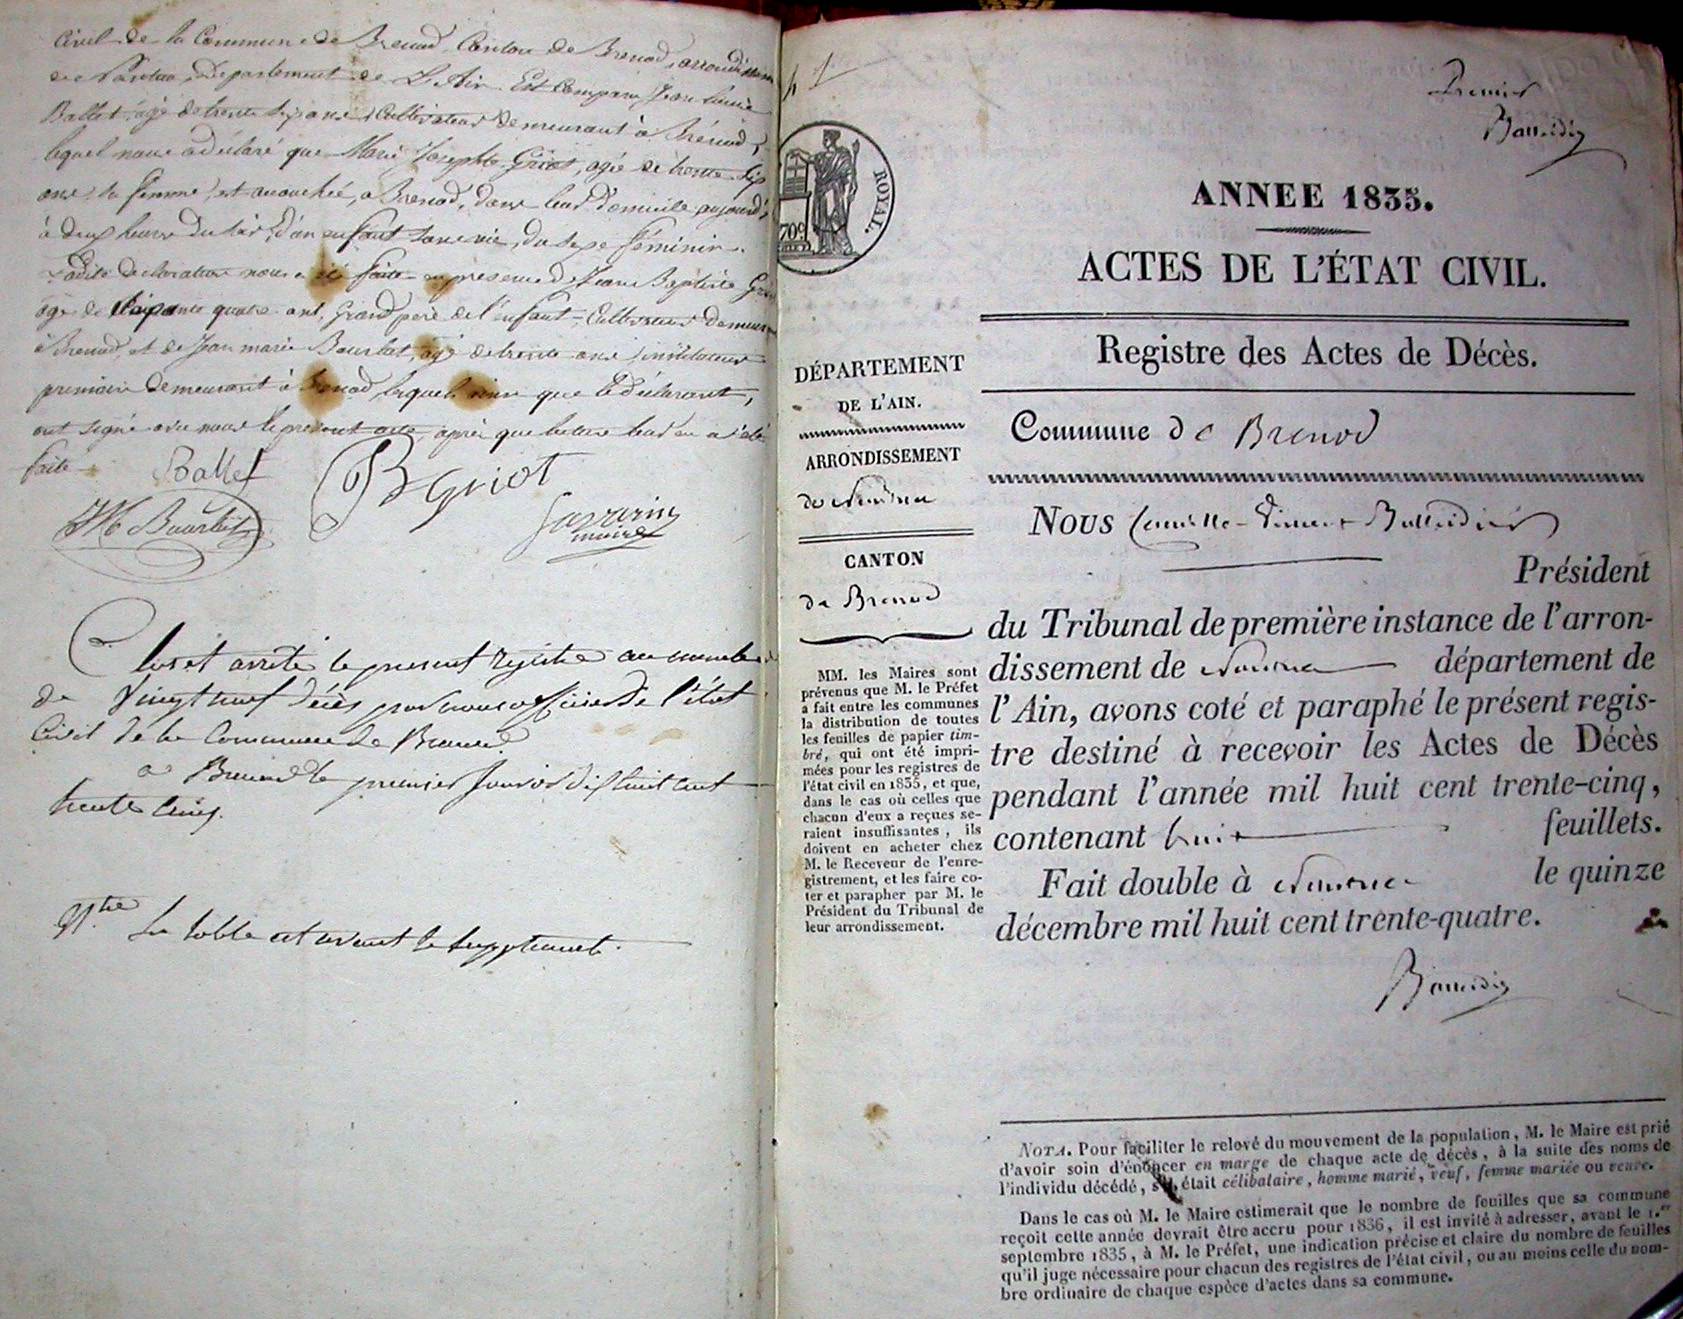 Civil de la Commune de Brenod Canton de Brenod, arrondissement
de Nantua, Département de L'Ain Est Comparu Jean Louis
Ballet, agé de trente six ans, Cultivateur demeurant à Brénod,
lequel nous a déclaré que Marie Josephte Griot, agée de trente six
ans, sa femme, est accouchée, a Brenod, dans leur domicile aujourd'
à deux heures du soir, d'un enfant sans vie, du sexe féminin.
Ladite déclaration nous a été faite en presence de Jean Baptiste Griot
agé de soixante quatre ans, Grand pere de l'enfant, Cultivateur demeurant
à Brenod, et de Jean marie Bourbet, agé de trente ans, instituteur
primaire demeurant à Brenod lequels ainsi que le déclarant,
ont signé avec nous le present acte, après que lecture leur en a été
faite
Ballet
B Griot
JM Bourbet
Savarin
maire
Clos et arrêté le present registre au nombre
de Vingt neuf décès par nous officier de l'état
Civil de la Commune de Brenod.
a Brenod le premier Janvier dix huit cent
trente cinq.
N.te La table est avant le supplément.
1
Premier
ROYAL.
70c
ANNEE 1835.
ACTES DE L'ÉTAT CIVIL.
Registre des Actes de Décès.
DÉPARTEMENT
DE L'AIN.
ARRONDISSEMENT
de Nantua
CANTON
de Brenod
MM. les Maires sont
prévenus que M. le Préfet
a fait entre les communes
la distribution de toutes
les feuilles de papier tim-
bré, qui ont été impri-
mées pour les registres de
l'état civil en 1835, et que,
dans le cas où celles que
chacun d'eux a reçues se-
raient insuffisantes, ils
doivent en acheter chez
M. le Receveur de l'enre-
gistrement, et les faire co-
ter et parapher par M. le
Président du Tribunal de
leur arrondissement.
Commune de Brenod
Nous Camille-Vincent
Président
du Tribunal de première instance de l'arron-
dissement de Nantua département de
l'Ain, avons coté et paraphé le présent regis-
tre destiné à recevoir les Actes de Décès
pendant l'année mil huit cent trente-cinq,
contenant huit feuillets.
Fait double à Nantua le quinze
décembre mil huit cent trente-quatre.
NOTA. Pour faciliter le relevé du mouvement de la population, M. le Maire est prié
d'avoir soin d'énoncer en marge de chaque acte de décès, à la suite des noms de
l'individu décédé, s'il était célibataire, homme marié, veuf, femme mariée ou veuve.
Dans le cas où M. le Maire estimerait que le nombre de feuilles que sa commune
reçoit cette année devrait être accru pour 1836, il est invité à adresser, avant le 1.er
septembre 1835, à M. le Préfet, une indication précise et claire du nombre de feuilles
qu'il juge nécessaire pour chacun des registres de l'état civil, ou au moins celle du nom-
bre ordinaire de chaque espèce d'actes dans sa commune.